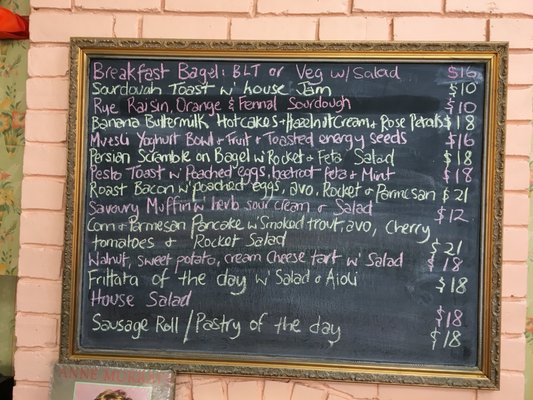 Breakfast Bagel: BLT or Veg w/ Salad $16
Sourdough Toast w' house Jam $10
Rye Raisin, Orange & Fennal Sourdough $10
Banana Buttermilk Hotcakes + Hazelnut Cream + Rose Petals $18
Muesli Yoghurt Bowl + Fruit + Toasted energy seeds $16
Persian Scramble on Bagel w' Rocket + Feta Salad $18
Pesto Toast w' Poached eggs, beetroot feta + Mint $18
Roast Bacon w' poached eggs, avo, Rocket & Parmesan $21
Savoury Muffin w' herb sour cream & Salad $12
Corn & Parmesan Pancake w' Smoked trout, avo, cherry
tomatoes + Rocket Salad $21
Walnut, sweet potato, cream cheese tart w' Salad $18
Frittata of the day w' Salad & Aioli $18
House Salad $18
Sausage Roll / Pastry of the day $18